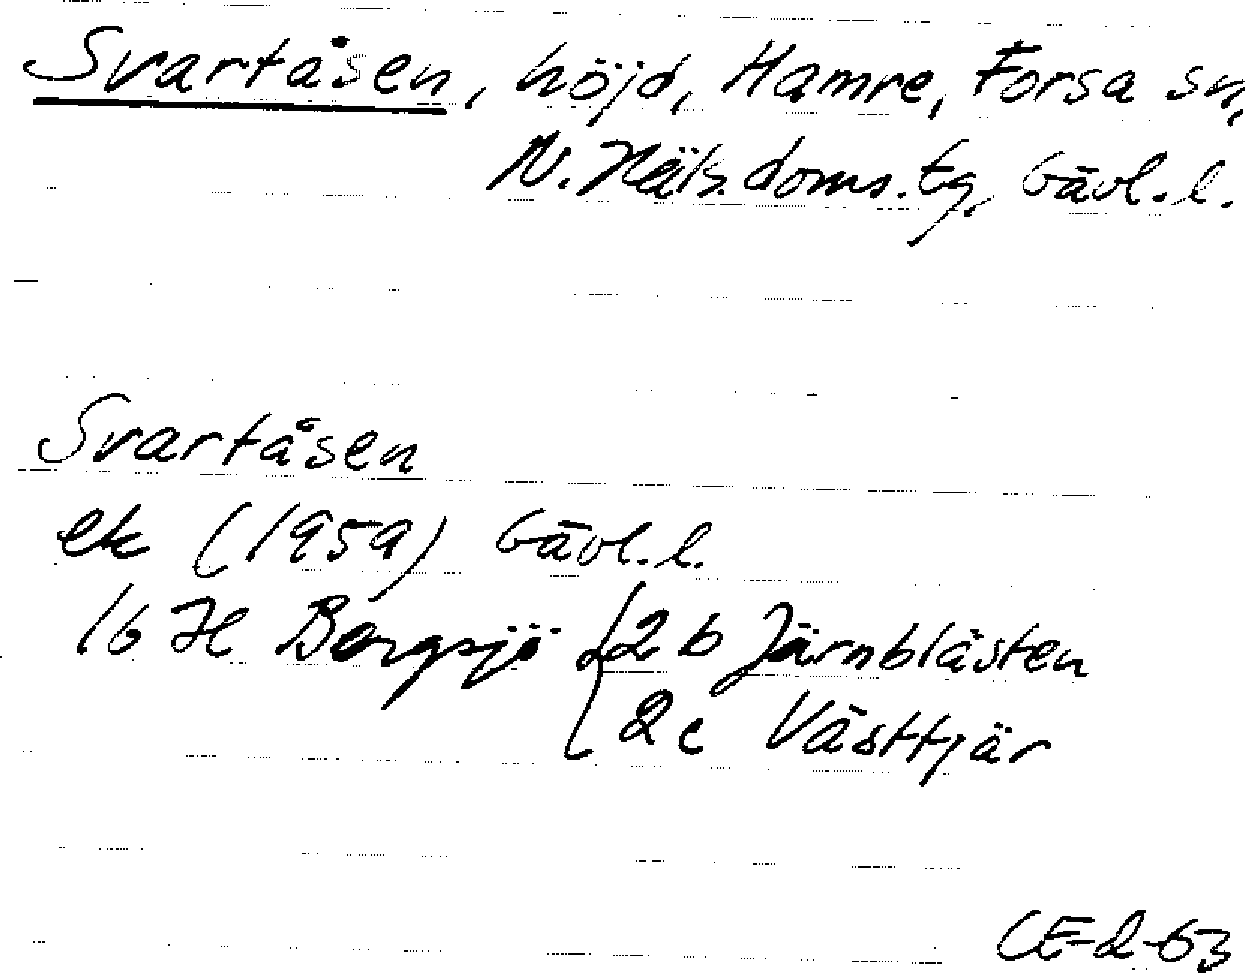 Svartåsen, höjd, Hamre, Forsa sn,
N. Häls. doms. tg, Gävl. l.
Svartåsen
ek (1959) Gävl. l.
16 H Bergsjö { 2 b Järnblästen
2 c Västtjär
CE-2-63